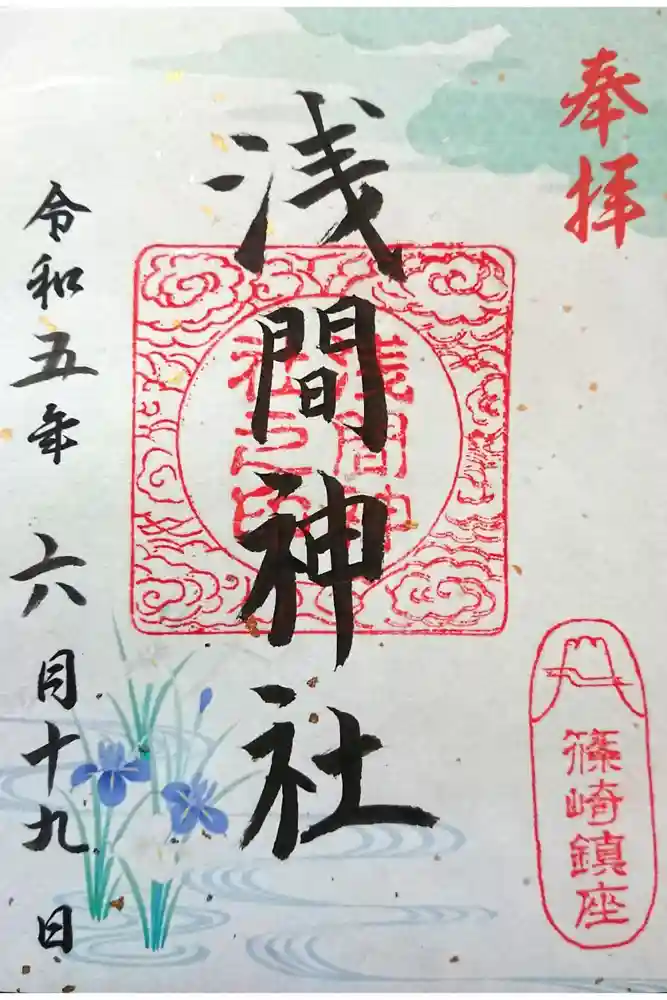 奉拝
浅間神社
浅間神
社之印
篠崎鎮座
令和五年 六月十九日